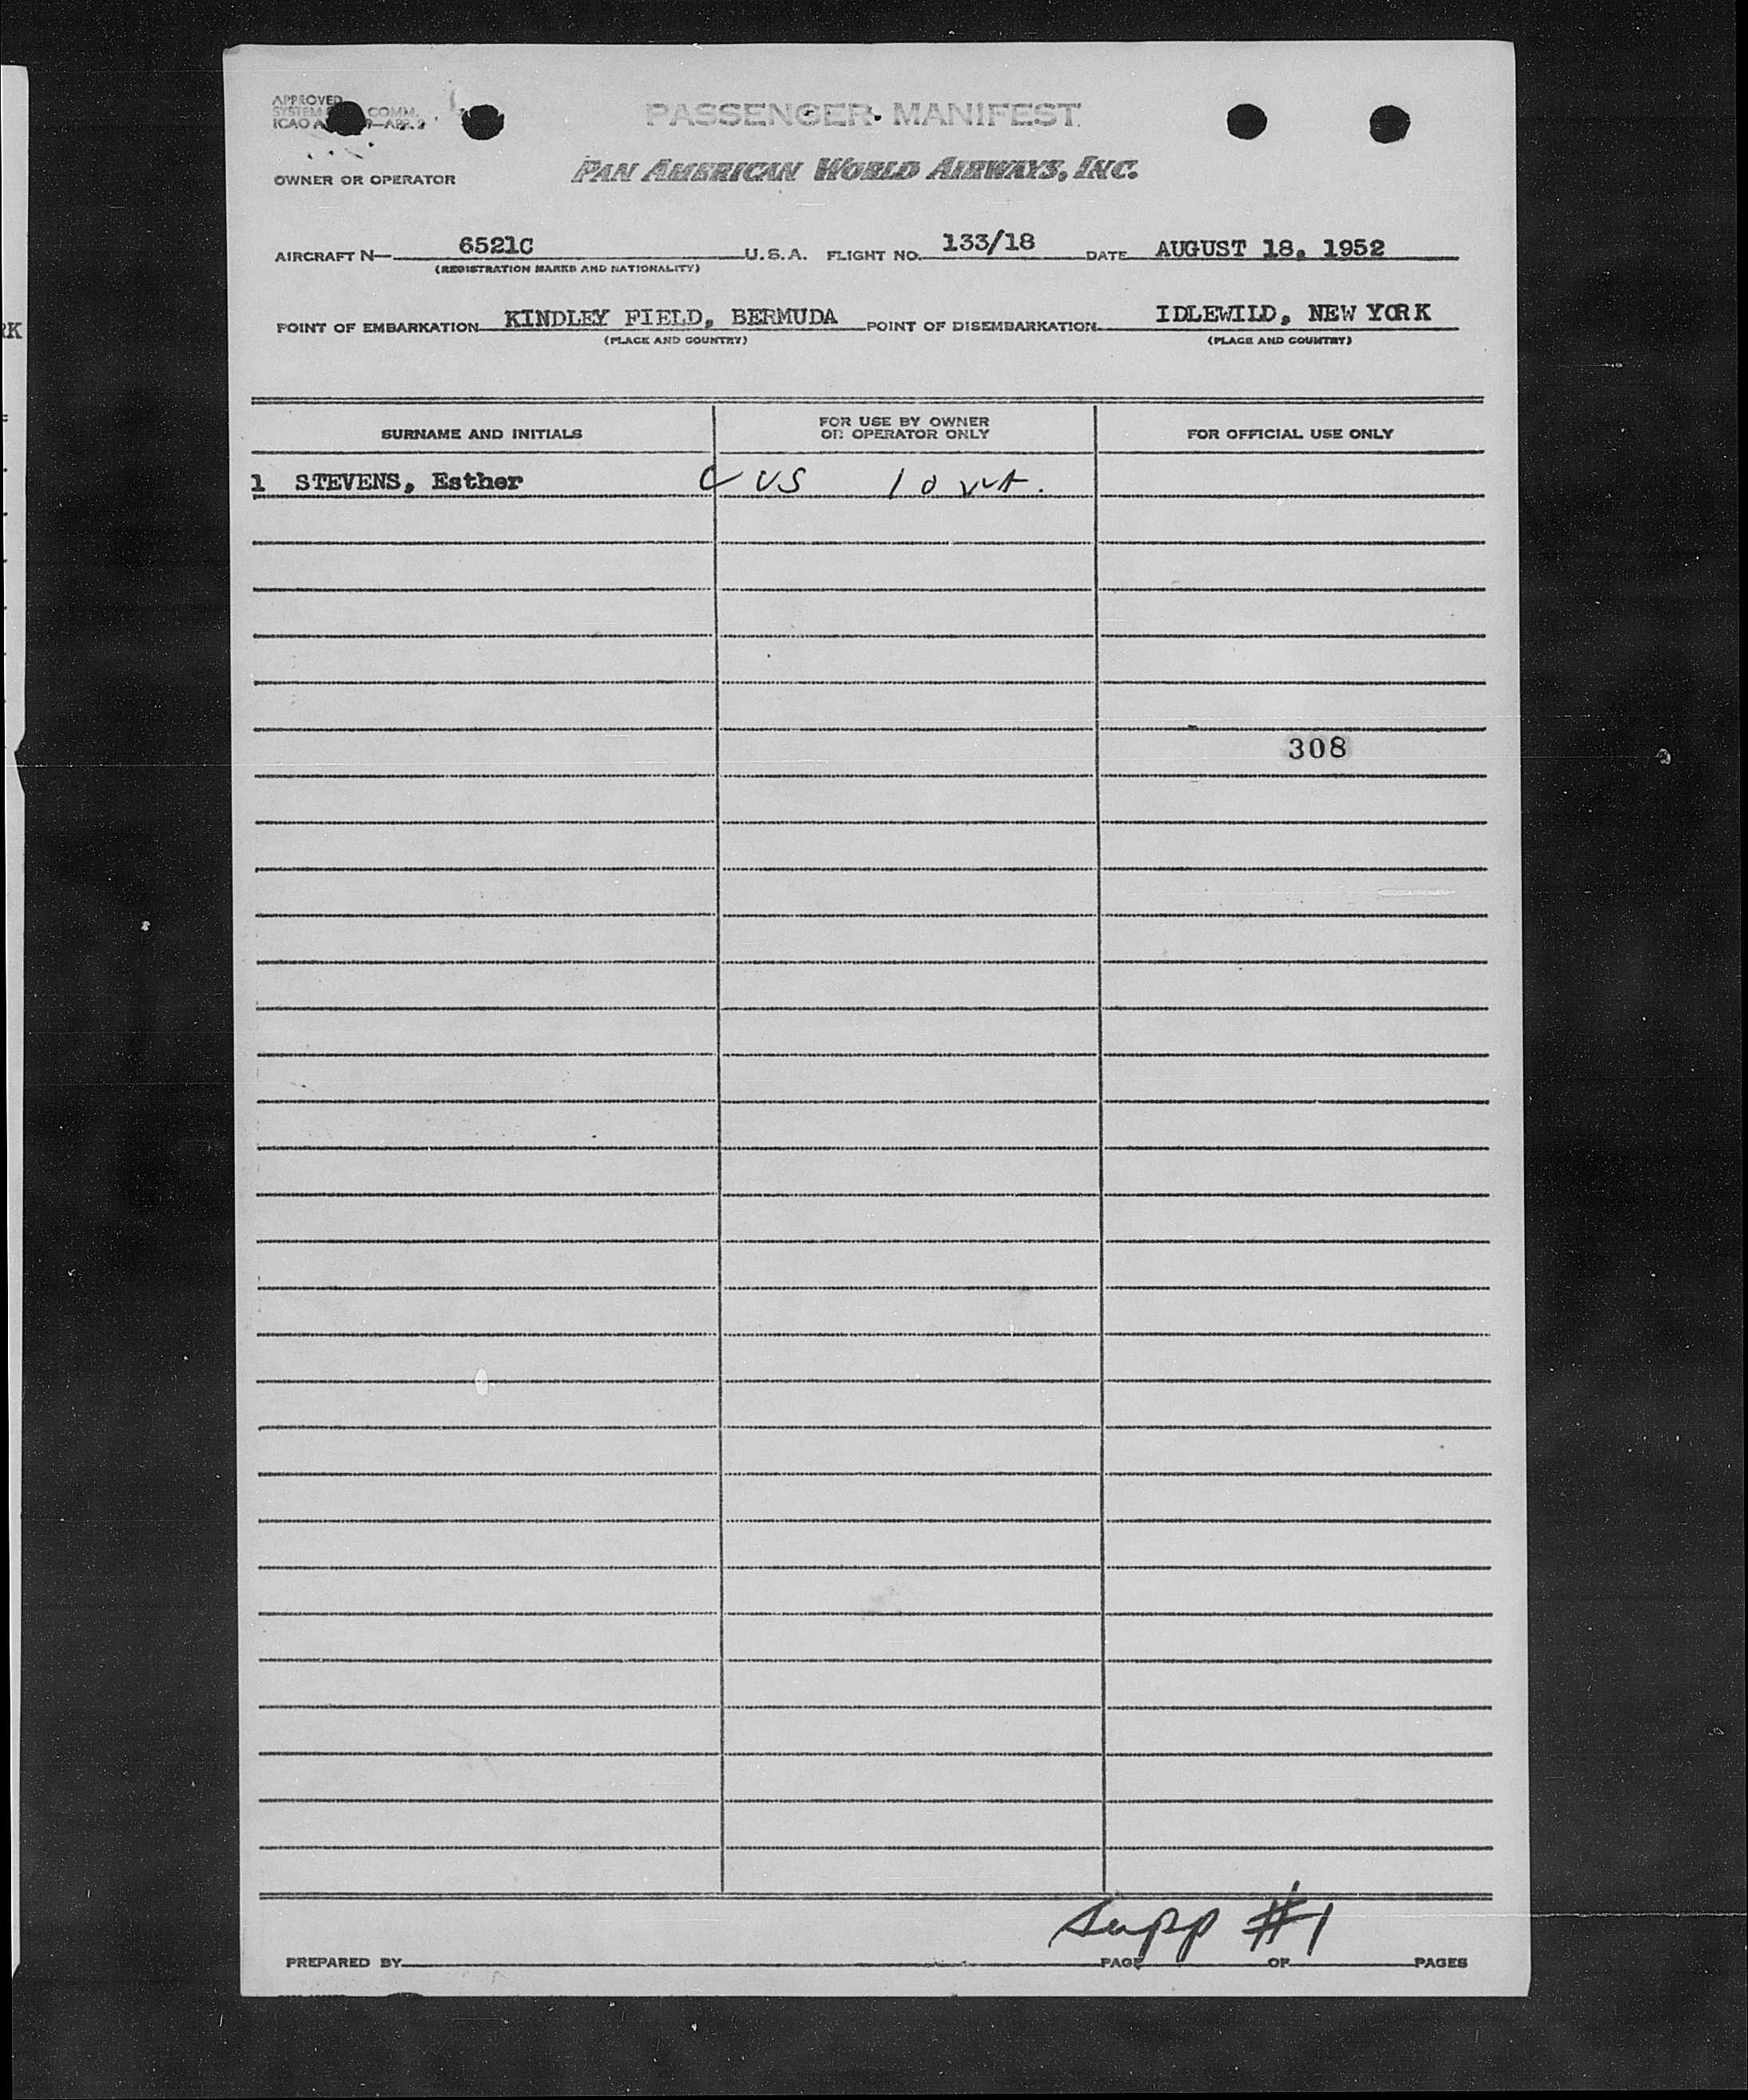 APPROVED
SYSTEM COMM.
ICAO A 9—APP. 2
PASSENGER MANIFEST
OWNER OR OPERATOR PAN AMERICAN WORLD AIRWAYS, INC.
AIRCRAFT N— 6521C U.S.A. FLIGHT NO. 133/18 DATE AUGUST 18, 1952
(REGISTRATION MARKS AND NATIONALITY)
RK
POINT OF EMBARKATION KINDLEY FIELD, BERMUDA POINT OF DISEMBARKATION IDLEWILD, NEW YORK
(PLACE AND COUNTRY) (PLACE AND COUNTRY)
SURNAME AND INITIALS FOR USE BY OWNER OR OPERATOR ONLY FOR OFFICIAL USE ONLY
1 STEVENS, Esther C US 10
308
Supp #1
PREPARED BY PAGE OF PAGES